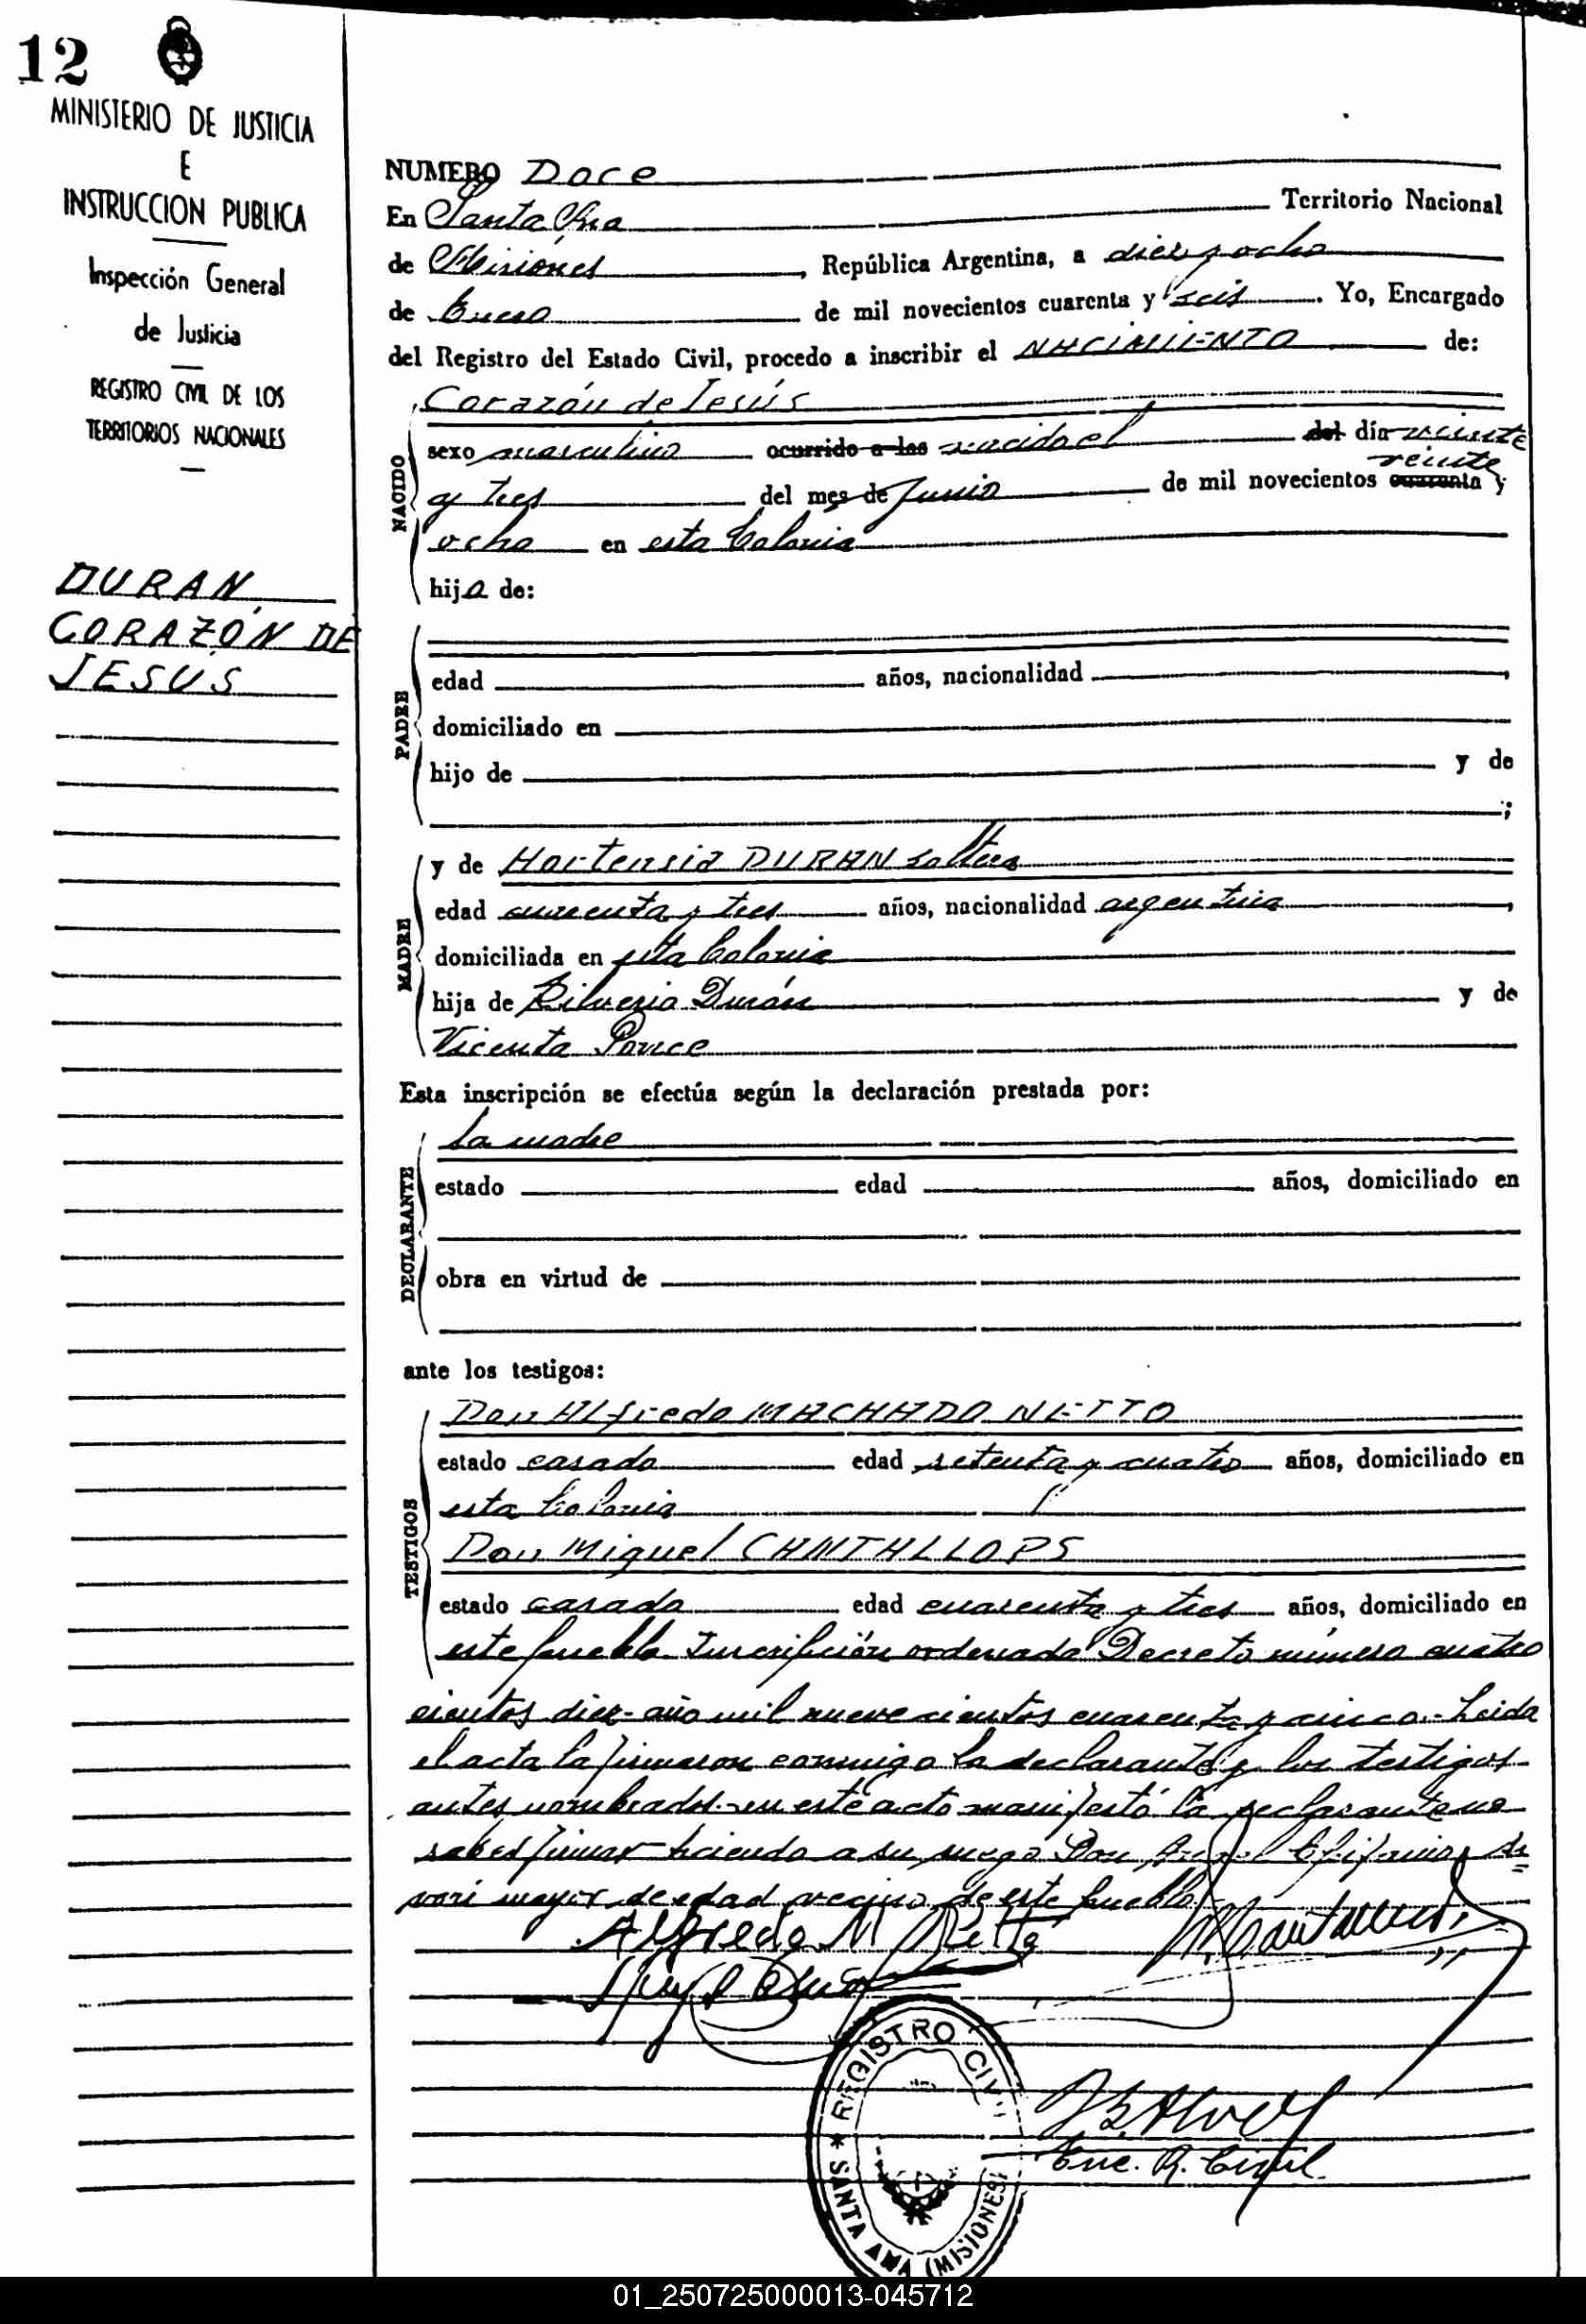 12
MINISTERIO DE JUSTICIA
E
INSTRUCCION PUBLICA
Inspección General
de Justicia
REGISTRO CIVIL DE LOS
TERRITORIOS NACIONALES
DURAN,
CORAZÓN DE
JESÚS
NUMERO Doce
En Santa Ana Territorio Nacional
de Misiones, República Argentina, a diez y ocho
de Enero de mil novecientos cuarenta y seis. Yo, Encargado
del Registro del Estado Civil, procedo a inscribir el NACIMIENTO de:
NACIDO
Corazón de Jesús
sexo masculino ocurrido a las nacido el del día veinte
veinte
y tres del mes de Junio de mil novecientos cuarenta y
ocho en esta Colonia
hijo de:
PADRE
edad años, nacionalidad ,
domiciliado en
hijo de y de
;
MADRE
y de Hortensia DURAN soltera
edad cuarenta y tres años, nacionalidad argentina ,
domiciliada en esta Colonia
hija de Silverio Durán y de
Vicenta Ponce
Esta inscripción se efectúa según la declaración prestada por:
DECLARANTE
la madre
estado edad años, domiciliado en
obra en virtud de
ante los testigos:
TESTIGOS
Don Alfredo MACHADO NETTO
estado casado edad setenta y cuatro años, domiciliado en
esta Colonia
Don Miguel CANTALLOPS
estado casado edad cuarenta y tres años, domiciliado en
este pueblo. Inscripción ordenada Decreto número cuatro
cientos diez- año mil nueve cientos cuarenta y cinco.- Leida
el acta la firmaron conmigo la declarante y los testigos
antes nombrados.- en este acto manifestó la declarante no
saber firmar haciendo a su ruego Don Epifanio
mayor de edad vecino de este pueblo
Alfredo M Netto
M. Cantallops
Enc. R. Civil
REGISTRO CIVIL
* SANTA ANA (MISIONES)
01_250725000013-045712